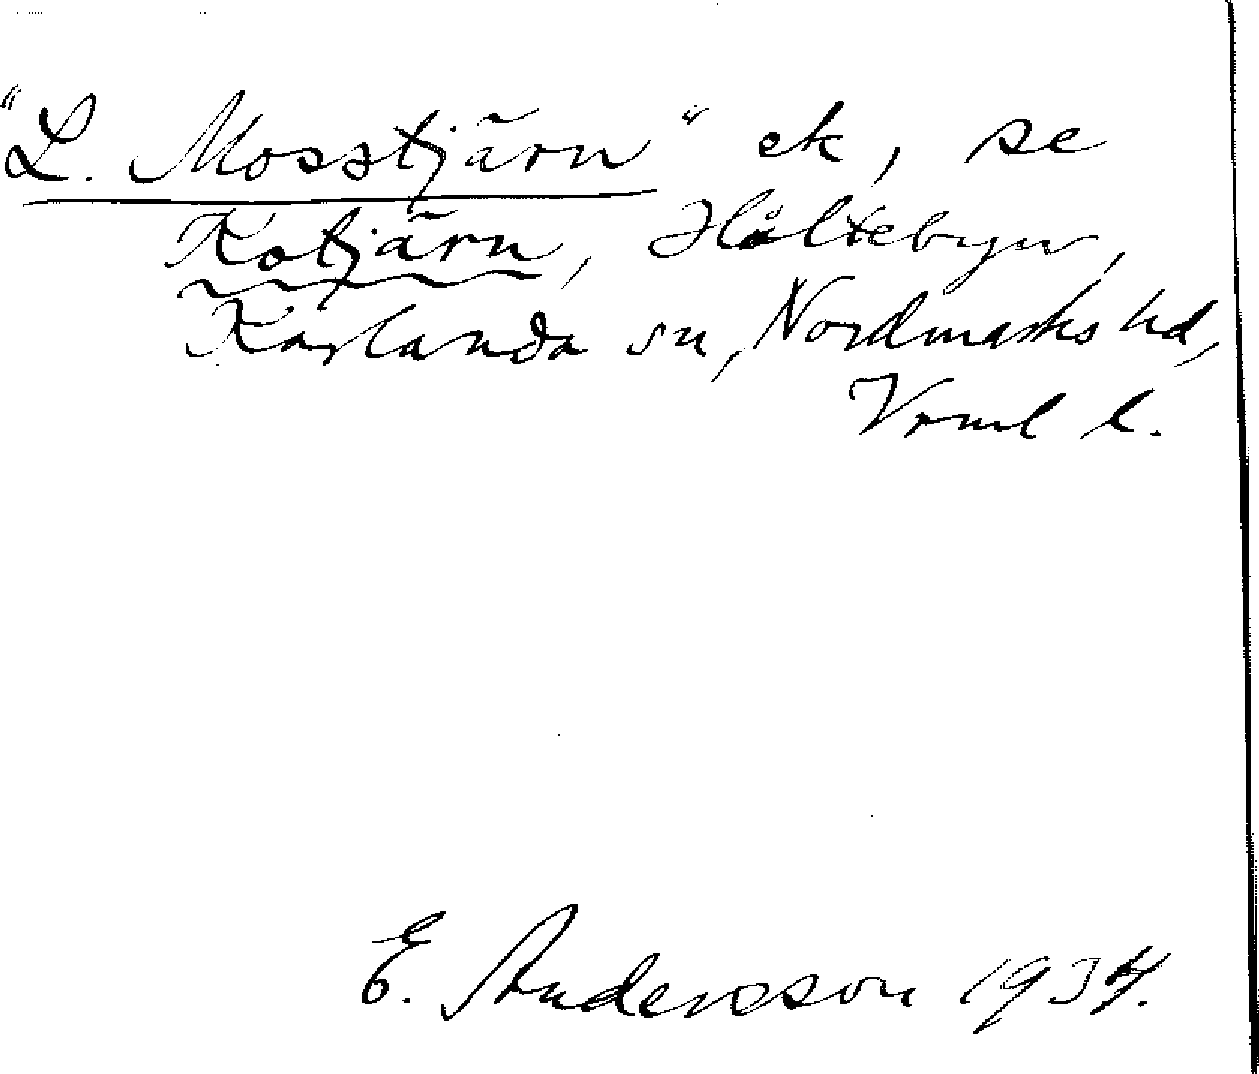 "L. Mosstjärn" ek, se
Kotjärn, Håltebyn,
Karlanda sn, Nordmarks hd,
Vrml l.
E. Andersson 1934.